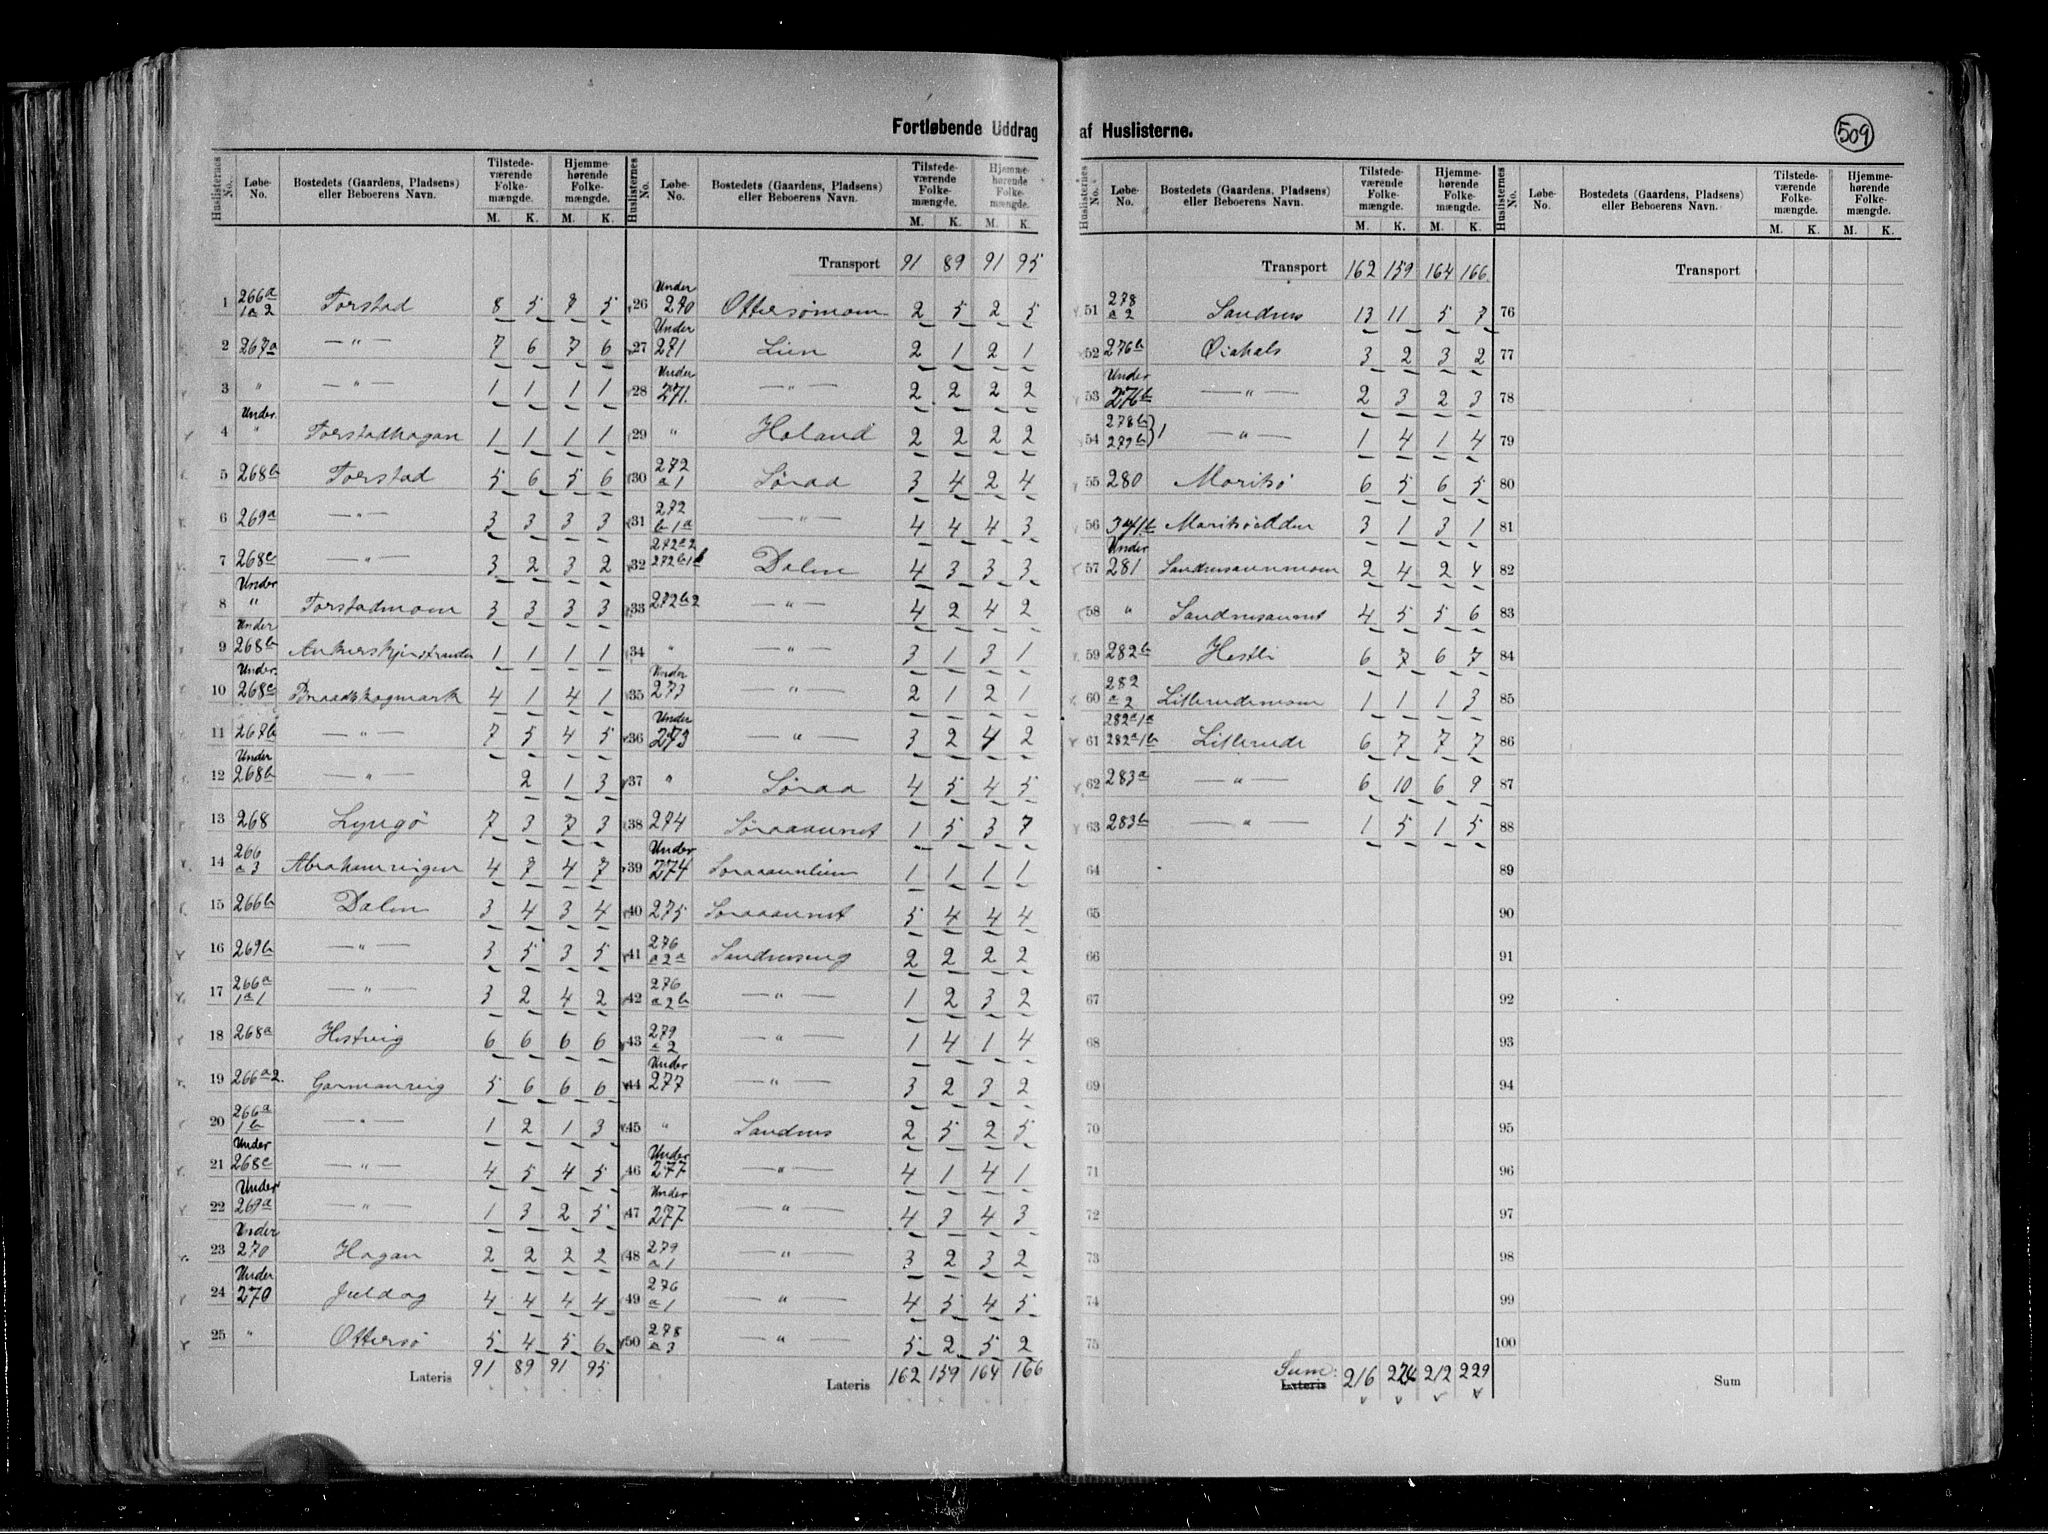 Fortløbende Uddrag af Huslisterne.
509
Huslisternes No. Løbe-No. Bostedets (Gaardens, Pladsens) eller Beboerens Navn. Tilstedeværende Folkemængde. M. K. Hjemmehørende Folkemængde. M. K.
1 266a 1a2 Torstad 8 5 7 5
2 267a —"— 7 6 7 6
3 " —"— 1 1 1 1
4 Under " Torstadhagan 1 1 1 1
5 268b Torstad 5 6 5 6
6 269a —"— 3 3 3 3
7 268c —"— 3 2 3 2
8 Under " Torstadmoen 3 3 3 3
9 Under 268b 1 1 1 1
10 Under 268c Braadskogmark 4 1 4 1
11 267b —"— 7 5 4 5
12 Under 268b —"— 2 1 3
13 268 Lyngø 7 3 7 3
14 266 a3 Abrahamvigen 4 7 4 7
15 266b Dalen 3 4 3 4
16 269b —"— 3 5 3 5
17 266a 1a1 —"— 3 2 4 2
18 268a Hestvig 6 6 6 6
19 266a2. Garmanvig 5 6 6 6
20 266a 1b —"— 1 2 1 3
21 Under 268c —"— 4 5 4 5
22 Under 269a —"— 1 3 2 5
23 Under 270 Hagan 2 2 2 2
24 Under 270 Juldag 4 4 4 4
25 " Ottersø 5 4 5 6
Lateris 91 89 91 95
Huslisternes No. Løbe-No. Bostedets (Gaardens, Pladsens) eller Beboerens Navn. Tilstedeværende Folkemængde. M. K. Hjemmehørende Folkemængde. M. K.
Transport 91 89 91 95
26 Under 270 Ottersømoen 2 5 2 5
27 Under 271 Lien 2 1 2 1
28 Under 271. —"— 2 2 2 2
29 " Holand 2 2 2 2
30 272 a1 Søraa 3 4 2 4
31 272 b1a —"— 4 4 4 3
32 272a2 272b1b Dalen 4 3 3 3
33 272b2 —"— 4 2 4 2
34 " —"— 3 1 3 1
35 Under 273 —"— 2 1 2 1
36 Under 273 —"— 3 2 4 2
37 " Søraa 4 5 4 5
38 274 Søraaaunet 1 5 3 7
39 Under 274 Søraaaunlien 1 1 1 1
40 275 Søraaaunet 5 4 4 4
41 276 a2a Sandneseng 2 2 2 2
42 276 a2b —"— 1 2 3 2
43 279 a2 —"— 1 4 1 4
44 Under 277 —"— 3 2 3 2
45 " Sandnes 2 5 2 5
46 Under 277 —"— 4 1 4 1
47 Under 277 —"— 4 3 4 3
48 279 a1 —"— 3 2 3 2
49 276 a1 —"— 4 5 4 5
50 278 a3 —"— 5 2 5 2
Lateris 162 159 164 166
Huslisternes No. Løbe-No. Bostedets (Gaardens, Pladsens) eller Beboerens Navn. Tilstedeværende Folkemængde. M. K. Hjemmehørende Folkemængde. M. K.
Transport 162 159 164 166
51 278 a2 Sandnes 13 11 5 7
52 276b Øiahals 3 2 3 2
53 Under 276b —"— 2 3 2 3
54 278b 279b } —"— 1 4 1 4
55 280 Moritsø 6 5 6 5
56 341b Moritsødden 3 1 3 1
57 Under 281 Sandnesaunmoen 2 4 2 4
58 " Sandnesaunet 4 5 5 6
59 282b Hestli 6 7 6 7
60 282 a2 Litleredemoen 1 1 1 3
61 282a1a 282a1b Litlerede 6 7 7 7
62 283a —"— 6 10 6 9
63 283b —"— 1 5 1 5
64
65
66
67
68
69
70
71
72
73
74
75
Sum: Lateris 216 224 212 229
Huslisternes No. Løbe-No. Bostedets (Gaardens, Pladsens) eller Beboerens Navn. Tilstedeværende Folkemængde. M. K. Hjemmehørende Folkemængde. M. K.
Transport
76
77
78
79
80
81
82
83
84
85
86
87
88
89
90
91
92
93
94
95
96
97
98
99
100
Sum